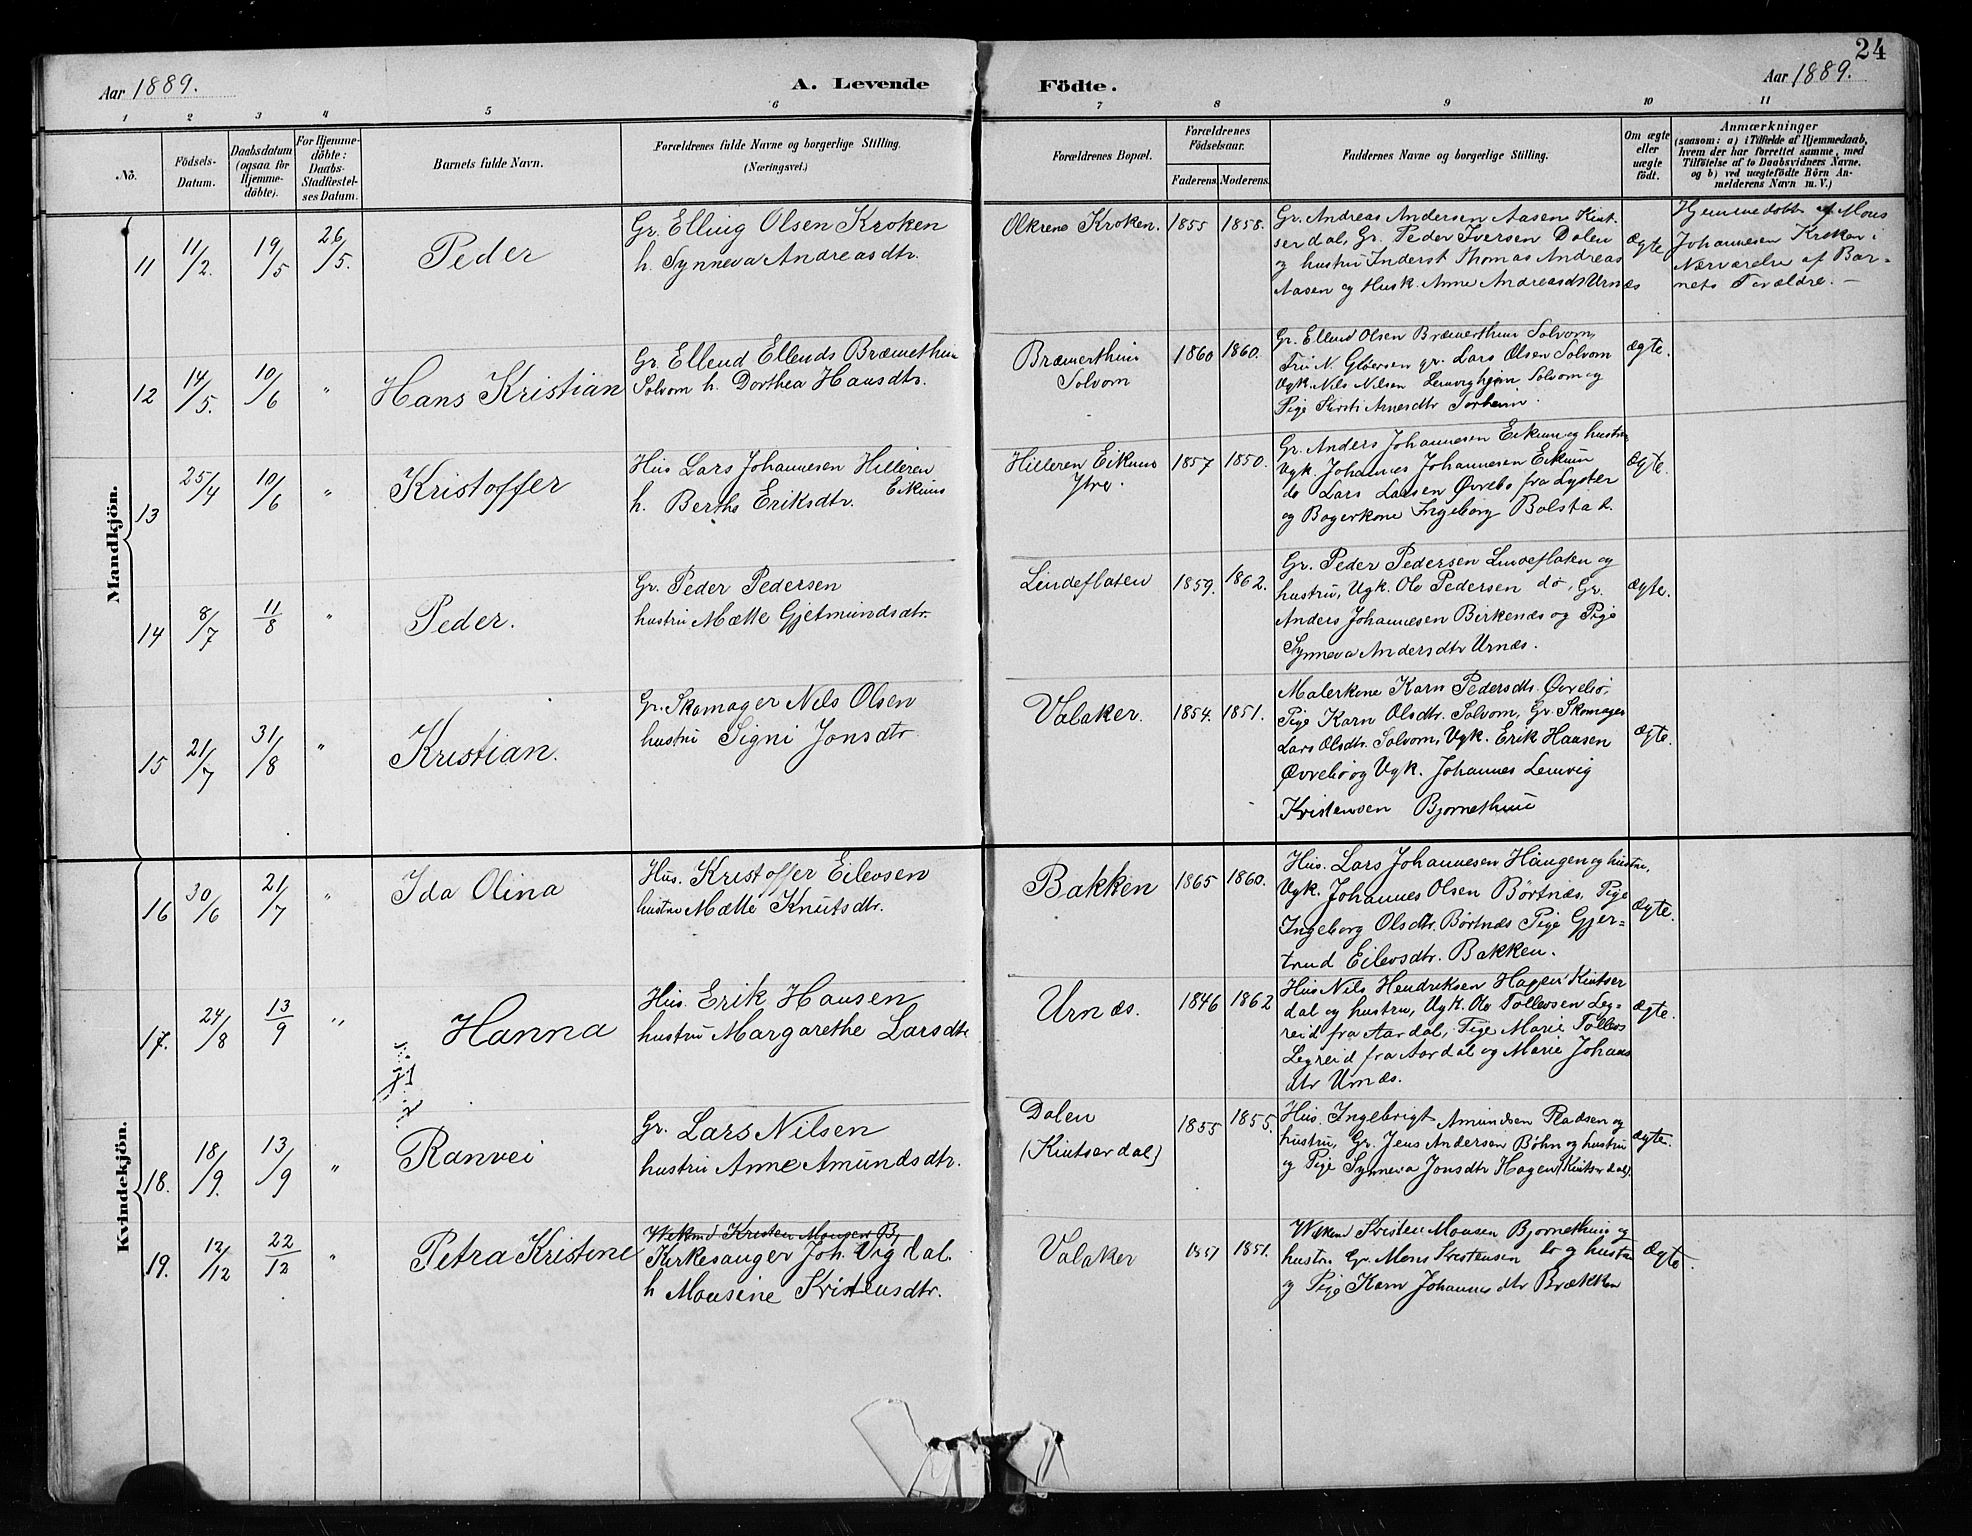 24
Aar 1889. A. Levende Födte. Aar 1889.
1 2 3 4 5 6 7 8 9 10 11
No.
Födsels-
Datum.
Daabsdatum
(ogsaa for
Hjemme-
döbte).
For Hjemme-
döbte:
Daabs-
Stadfæstel-
ses Datum.
Barnets fulde Navn.
Forældrenes fulde Navne og borgerlige Stilling.
(Næringsvei.)
Forældrenes Bopæl.
Forældrenes
Födselsaar.
Faderens. Moderens.
Faddernes Navne og borgerlige Stilling.
Om ægte
eller
uægte
födt.
Anmærkninger
(saasom: a) i Tilfælde af Hjemmedaab,
hvem der har forrettet samme, med
Tilföielse af to Daabsvidners Navne.
og b) ved uægtefödte Börn An-
melderens Navn m. V.)
Mandkjön.
11 11/2. 19/5 26/5. Peder
Gr. Elling Olsen Kroken
h. Synneva Andreasdtr.
Kroken. 1855 1858.
Gr. Andreas Andersen Aasen Kint-
serdal, Gr. Peder Iversen Dalen
og hustru Inderst Thomas Andreas
Aasen og Husk. Anne Andreasdt Urnæs
Ægte
Hjemmedøbt af Mons
Johannesen Kroken i
Nærværelse af Bar-
nets Forældre. —
12 14/5. 10/6 " Hans Kristian
Gr. Ellend Ellends
Solvorn h. Dorthea Hansdtr.
Solvorn
1860 1860.
Gr. Ellend Olsen Solvorn,
gr. Lars Olsen Solvorn
Ugk. Nils Nilsen Solvorn og
Pige Kirsti Arnesdtr Sørheim.
Ægte.
13 25/4 10/6 " Kristoffer
Hus Lars Johannesen Hilleren
h. Berthe Eriksdtr. Eikum
Hilleren Eikum
Ytre.
1857 1850.
Gr. Anders Johannesen Eikum og hustru
Ugk. Johannes Johannesen Eikum
do Lars Larsen Øvrebø fra Lyster
og Bogerkone Ingeborg Bolstad.
Ægte.
14 8/7 11/8 " Peder.
Gr. Peder Pedersen
hustru Mætte Gjetmundsdtr.
Lindeflaten 1859. 1862.
Gr. Peder Pedersen Lindeflaten og
hustru, Ugk. Ole Pedersen do, Gr.
Anders Johannesen Birkenæs og Pige
Synneva Andersdtr Urnæs.
Ægte.
15 21/7 31/8 " Kristian.
Gr. Skomager Nils Olsen
hustru Signi Jonsdtr
Valaker. 1854. 1851.
Malerkone Karn Pedersdtr. Øvrebø,
Pige Karn Olsdtr. Solvorn, Gr. Skomager
Lars Olsdtr. Solvorn, Ugk. Erik Hansen
Øvrebø og Ugk. Johannes Lemvig
Kristensen Bjørnethun
Ægte.
Kvindekjön.
16 30/6 21/7 " Ida Olina
Hus. Kristoffer Eilevsen
hustru Mætte Knutsdtr.
Bakken 1865 1860.
Hus. Lars Johannesen Haugen og hustru,
Ugk. Johannes Olsen Børtnæs, Pige
Ingeborg Olsdtr. Børtnæs Pige Gjer-
trud Eilevsdtr. Bakken.
Ægte.
17. 24/8 13/9 " Hanna
Hus. Erik Hansen
hustru Margarethe Larsdtr
Urnæs. 1846 1862
Hus Nils Hendriksen Kintser
dal og hustru, Ugk. Ole Tollevsen Leg-
reid fra Aardal, Pige Marie Tollevs
Legreid fra Aardal og Marie Johans
dtr Urnæs.
Ægte.
18. 18/9. 13/9 " Ranvei
Gr. Lars Nilsen
hustru Anne Amundsdtr.
Dalen
(Kintserdal)
1855 1855.
Hus. Ingebrigt Amundsen Pladsen og
hustru, Gr. Jens Andersen Bøhn og hustru
og Pige Synneva Jonsdtr Hagen (Kintserdal).
Ægte.
19. 12/12 22/12 " Petra Kristine
Kristen Monsen Bj
Kirkesanger Joh. Vigdal.
h Monsine Kristensdtr.
Valaker 1851 1851.
Kristen Monsen Bjørnethun og
hustru Gr. Mons Kristensen og hustru
og Pige Karn Johannesdtr Brækken
Ægte.